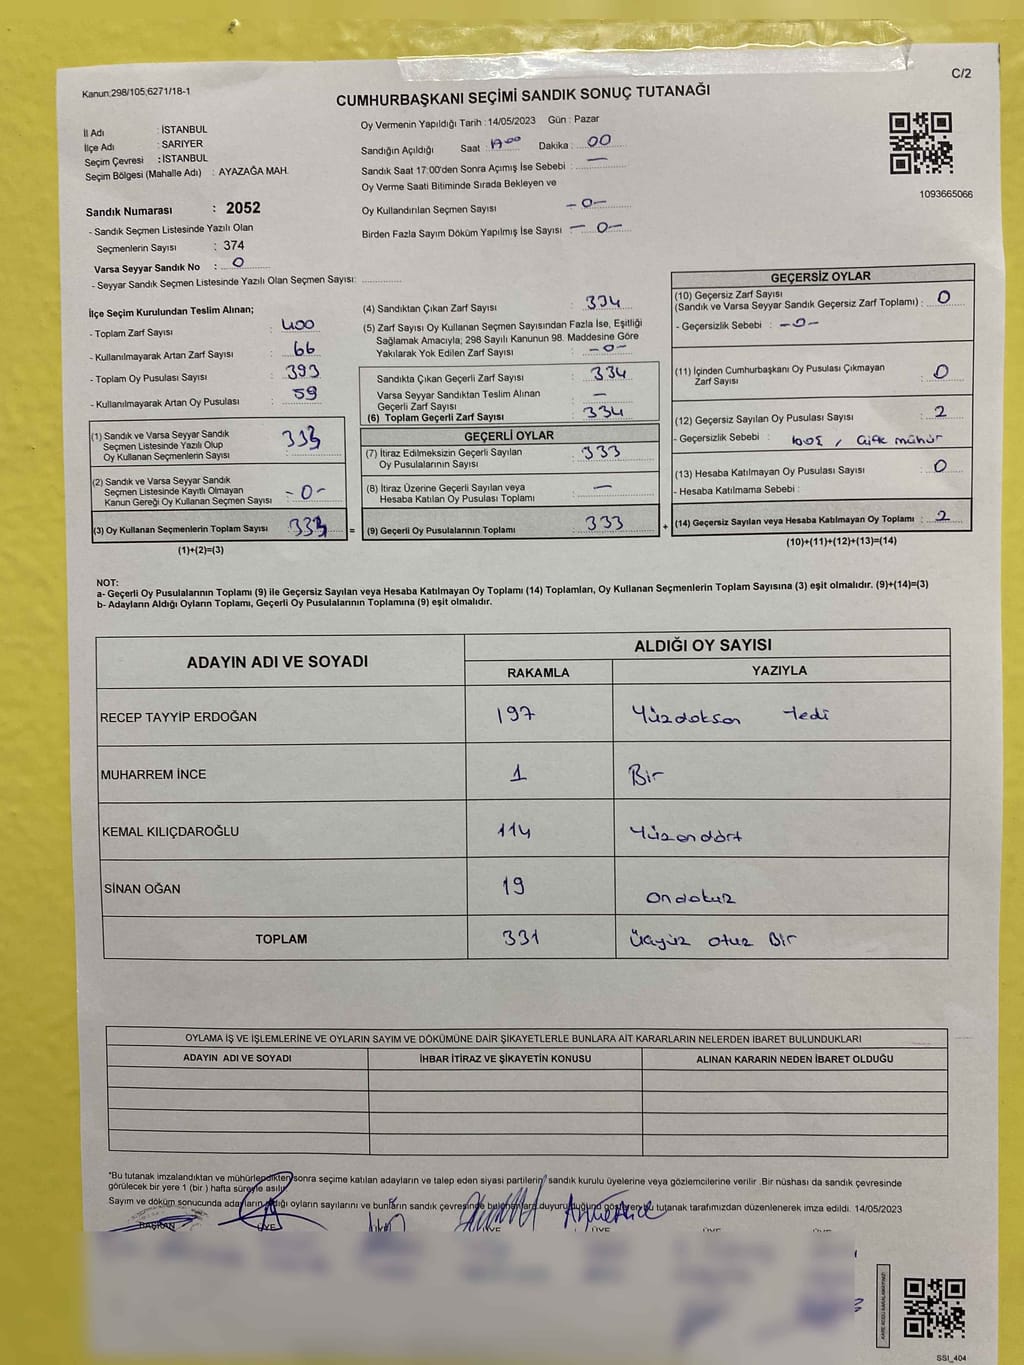 C/2
Kanun;298/105;6271/18-1
CUMHURBAŞKANI SEÇİMİ SANDIK SONUÇ TUTANAĞI
İl Adı : İSTANBUL
İlçe Adı : SARIYER
Seçim Çevresi : İSTANBUL
Seçim Bölgesi (Mahalle Adı) : AYAZAĞA MAH.
Oy Vermenin Yapıldığı Tarih : 14/05/2023 Gün : Pazar
Sandığın Açıldığı Saat : 17:00 Dakika : 00
Sandık Saat 17:00'den Sonra Açımış İse Sebebi : —
Oy Verme Saati Bitiminde Sırada Bekleyen ve
Oy Kullandırılan Seçmen Sayısı -0-
Birden Fazla Sayım Döküm Yapılmış İse Sayısı -0-
1093665066
Sandık Numarası : 2052
- Sandık Seçmen Listesinde Yazılı Olan
Seçmenlerin Sayısı : 374
Varsa Seyyar Sandık No : 0
- Seyyar Sandık Seçmen Listesinde Yazılı Olan Seçmen Sayısı:
İlçe Seçim Kurulundan Teslim Alınan;
- Toplam Zarf Sayısı : 400
- Kullanılmayarak Artan Zarf Sayısı : 66
- Toplam Oy Pusulası Sayısı : 393
- Kullanılmayarak Artan Oy Pusulası : 59
(1) Sandık ve Varsa Seyyar Sandık
Seçmen Listesinde Yazılı Olup
Oy Kullanan Seçmenlerin Sayısı : 333
(2) Sandık ve Varsa Seyyar Sandık
Seçmen Listesinde Kayıtlı Olmayan
Kanun Gereği Oy Kullanan Seçmen Sayısı : -0-
(3) Oy Kullanan Seçmenlerin Toplam Sayısı : 333
(1)+(2)=(3)
(4) Sandıktan Çıkan Zarf Sayısı : 334
(5) Zarf Sayısı Oy Kullanan Seçmen Sayısından Fazla İse, Eşitliği
Sağlamak Amacıyla, 298 Sayılı Kanunun 98. Maddesine Göre
Yakılarak Yok Edilen Zarf Sayısı : -0-
Sandıkta Çıkan Geçerli Zarf Sayısı : 334
Varsa Seyyar Sandıktan Teslim Alınan
Geçerli Zarf Sayısı : —
(6) Toplam Geçerli Zarf Sayısı : 334
GEÇERLİ OYLAR
(7) İtiraz Edilmeksizin Geçerli Sayılan
Oy Pusulalarının Sayısı : 333
(8) İtiraz Üzerine Geçerli Sayılan veya
Hesaba Katılan Oy Pusulası Toplamı : —
= (9) Geçerli Oy Pusulalarının Toplamı : 333
GEÇERSİZ OYLAR
(10) Geçersiz Zarf Sayısı
(Sandık ve Varsa Seyyar Sandık Geçersiz Zarf Toplamı) : 0
- Geçersizlik Sebebi : -0-
(11) İçinden Cumhurbaşkanı Oy Pusulası Çıkmayan
Zarf Sayısı : 0
(12) Geçersiz Sayılan Oy Pusulası Sayısı : 2
- Geçersizlik Sebebi : boş, Çift mühür
(13) Hesaba Katılmayan Oy Pusulası Sayısı : 0
- Hesaba Katılmama Sebebi :
+ (14) Geçersiz Sayılan veya Hesaba Katılmayan Oy Toplamı : 2
(10)+(11)+(12)+(13)=(14)
NOT:
a- Geçerli Oy Pusulalarının Toplamı (9) ile Geçersiz Sayılan veya Hesaba Katılmayan Oy Toplamı (14) Toplamları, Oy Kullanan Seçmenlerin Toplam Sayısına (3) eşit olmalıdır. (9)+(14)=(3)
b- Adayların Aldığı Oyların Toplamı, Geçerli Oy Pusulalarının Toplamına (9) eşit olmalıdır.
ADAYIN ADI VE SOYADI
ALDIĞI OY SAYISI
RAKAMLA YAZIYLA
RECEP TAYYİP ERDOĞAN 197 Yüzdokson Yedi
MUHARREM İNCE 1 Bir
KEMAL KILIÇDAROĞLU 114 Yüzondört
SİNAN OĞAN 19 ondokuz
TOPLAM 331 üçyüz otuz Bir
OYLAMA İŞ VE İŞLEMLERİNE VE OYLARIN SAYIM VE DÖKÜMÜNE DAİR ŞİKAYETLERLE BUNLARA AİT KARARLARIN NELERDEN İBARET BULUNDUKLARI
ADAYIN ADI VE SOYADI İHBAR İTİRAZ VE ŞİKAYETİN KONUSU ALINAN KARARIN NEDEN İBARET OLDUĞU
*Bu tutanak imzalandıktan ve mühürlendikten sonra seçime katılan adayların ve talep eden siyasi partilerin sandık kurulu üyelerine veya gözlemcilerine verilir .Bir nüshası da sandık çevresinde
görülecek bir yere 1 (bir ) hafta süreyle asılır.
Sayım ve döküm sonucunda adayların aldığı oyların sayılarını ve bunların sandık çevresinde bulunanlara duyurulduğunu gösteren bu tutanak tarafımızdan düzenlenerek imza edildi. 14/05/2023
BAŞKAN ÜYE ÜYE ÜYE ÜYE
SSI_404